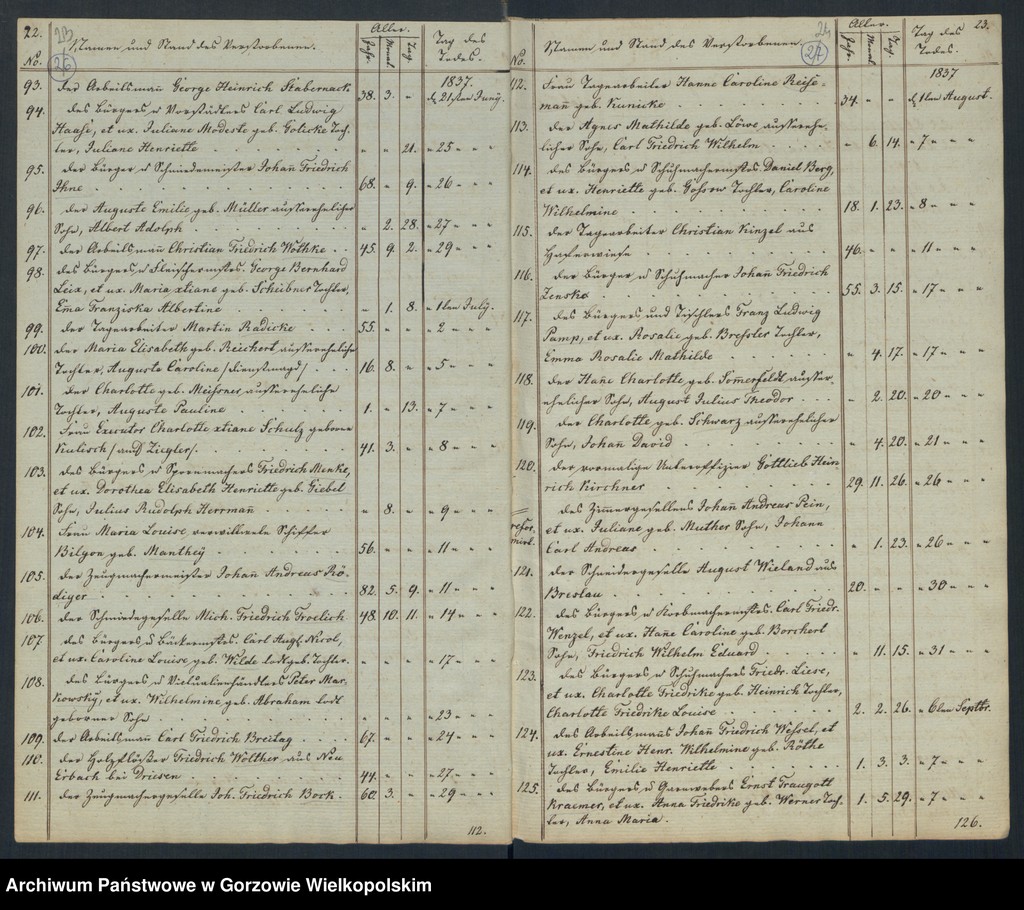 22.
23
26
No.
Namen und Stand des Verstorbenen.
Alter.
Jahr.
Monat.
Tag.
Tag des Todes.
1837.
93. der Arbeitsmañ George Heinrich Stabernack 38. 3. " d. 21sten Juny.
94. des Bürgers u Vorstädters Carl Ludwig
Haase, et ux. Juliane Modeste geb. Golicke Toch-
ter, Juliane Henriette " " 21. " 25 " " "
95. der Bürger u Schmiedemeister Johañ Friedrich
Ihne 68. " 9. " 26 " " "
96. der Auguste Emilie geb. Müller aussereheliche
Sohn, Albert Adolph " 2. 28. " 27 " " "
97. der Arbeitsmañ Christian Friedrich Wothke 45. 9. 2. " 29 " " "
98. des Bürgers u Fleischermstrs. George Bernhard
Leix, et ux. Maria xtiane geb. Scheibner Tochter,
Ema Franziska Albertine " 1. 8. " 1ten July.
99. der Tagearbeiter Martin Radicke 55. " " " 2 " " "
100. der Maria Elisabeth geb. Reichert aussereheliche
Tochter, Auguste Caroline /Dienstmagd/ 16. 8. " " 5 " " "
101. der Charlotte geb. Meissner aussereheliche
Tochter, Auguste Pauline 1. " 13. " 7 " " "
102. Frau Executor Charlotte xtiane Schulz geborne
Kulisch /auch Ziegler/. 41. 3. " " 8 " " "
103. des Bürgers u Spornmachers Friedrich Menke,
et ux. Dorothea Elisabeth Henriette geb. Giebel
Sohn, Julius Rudolph Herrmañ " 8. " " 9 " " "
104. Frau Maria Louise verwittwete Schiffer
Bilgon geb. Manthey 56. " " " 11 " " "
105. der Zeugmachermeister Johañ Andreas Rö-
diger 82. 5. 9. " 11 " " "
106. der Schmiedegeselle Mich. Friedrich Froelich 48. 10. 11. " 14 " " "
107. des Bürgers u Bäckermstrs. Carl Aug. Nicol,
et ux. Caroline Louise geb. Wilde todtgeb. Tochter. " " " " 17 " " "
108. des Bürgers u Victualienhändlers Peter Mar-
kowsky, et ux. Wilhelmine, geb. Abraham todt
geborner Sohn " " " " 23 " "
109. der Arbeitsmañ Carl Friedrich Breitag 67. " " " 24 " " "
110. der Holzflösser Friedrich Wolther aus Neu
Erbach bei Driesen 44. " " " 27 " " "
111. der Zeugmachergeselle Joh. Friedrich Bork. 60. 3. " " 29 " " "
112.
23.
24
27
No.
Namen und Stand des Verstorbenen
Alter.
Jahr.
Monat.
Tag.
Tag des Todes.
1837
112. Frau Tagearbeiter Hanne Caroline Reisse-
mañ geb. Kunicke 34. " " d. 1ten August.
113. der Agnes Mathilde geb. Löwe aussereheli-
licher Sohn, Carl Friedrich Wilhelm " 6. 14. " 7 " " "
114. des Bürgers u Schuhmachermstrs. Daniel Berg,
et ux. Henriette geb. Gohsrow Tochter, Caroline
Wilhelmine 18. 1. 23. " 8 " " "
115. der Tagearbeiter Christian Kinzel aus
Haferwiese 46. " " " 11 " " "
116. der Bürger u Schuhmacher Johañ Friedrich
Zenske 55. 3. 15. " 17 " " "
117. des Bürgers und Tischlers Franz Ludwig
Pamp, et ux. Rosalie geb. Bressler Tochter,
Emma Rosalie Mathilde " 4. 17. " 17 " " "
118. der Hañe Charlotte geb. Somerfeldt ausser-
ehelicher Sohn, August Julius Theodor " 2. 20. " 20 " " "
119. der Charlotte geb. Schwarz ausserehelicher
Sohn, Johañ David " 4. 20. " 21 " " "
120. der vormalige Unteroffizier Gottlieb Hein-
rich Kirchner 29. 11. 26. " 26 " " "
refor-
mirt.
des Zimmergesellens Johañ Andreas Pein,
et ux. Juliane geb. Muther Sohn, Johann
Carl Andreas " 1. 23. " 26 " " "
121. der Schneidergeselle August Wieland aus
Breslau 20. " " " 30 " " "
122. des Bürgers u Korbmachermstrs. Carl Friedr.
Wenzel, et ux. Hañe Caroline geb. Borchert
Sohn, Friedrich Wilhelm Eduard " 11. 15. " 31 " " "
123. des Bürgers u Schuhmachers Friedr. Liese,
et ux. Charlotte Friedrike geb. Heinrich Tochter,
Charlotte Friedrike Louise 2. 2. 26. " 6ten Septbr.
124. des Arbeitsmañs Johañ Friedrich Wessel, et
ux. Ernestine Henr. Wilhelmine geb. Röthe
Tochter, Emilie Henriette 1. 3. 3. " 7 " " "
125. des Bürgers u Garnwebers Ernst Traugott
Kraemer, et ux. Anna Friedrike geb. Werner Toch-
ter, Anna Maria. 1. 5. 29. " 7 " " "
126.
Archiwum Państwowe w Gorzowie Wielkopolskim